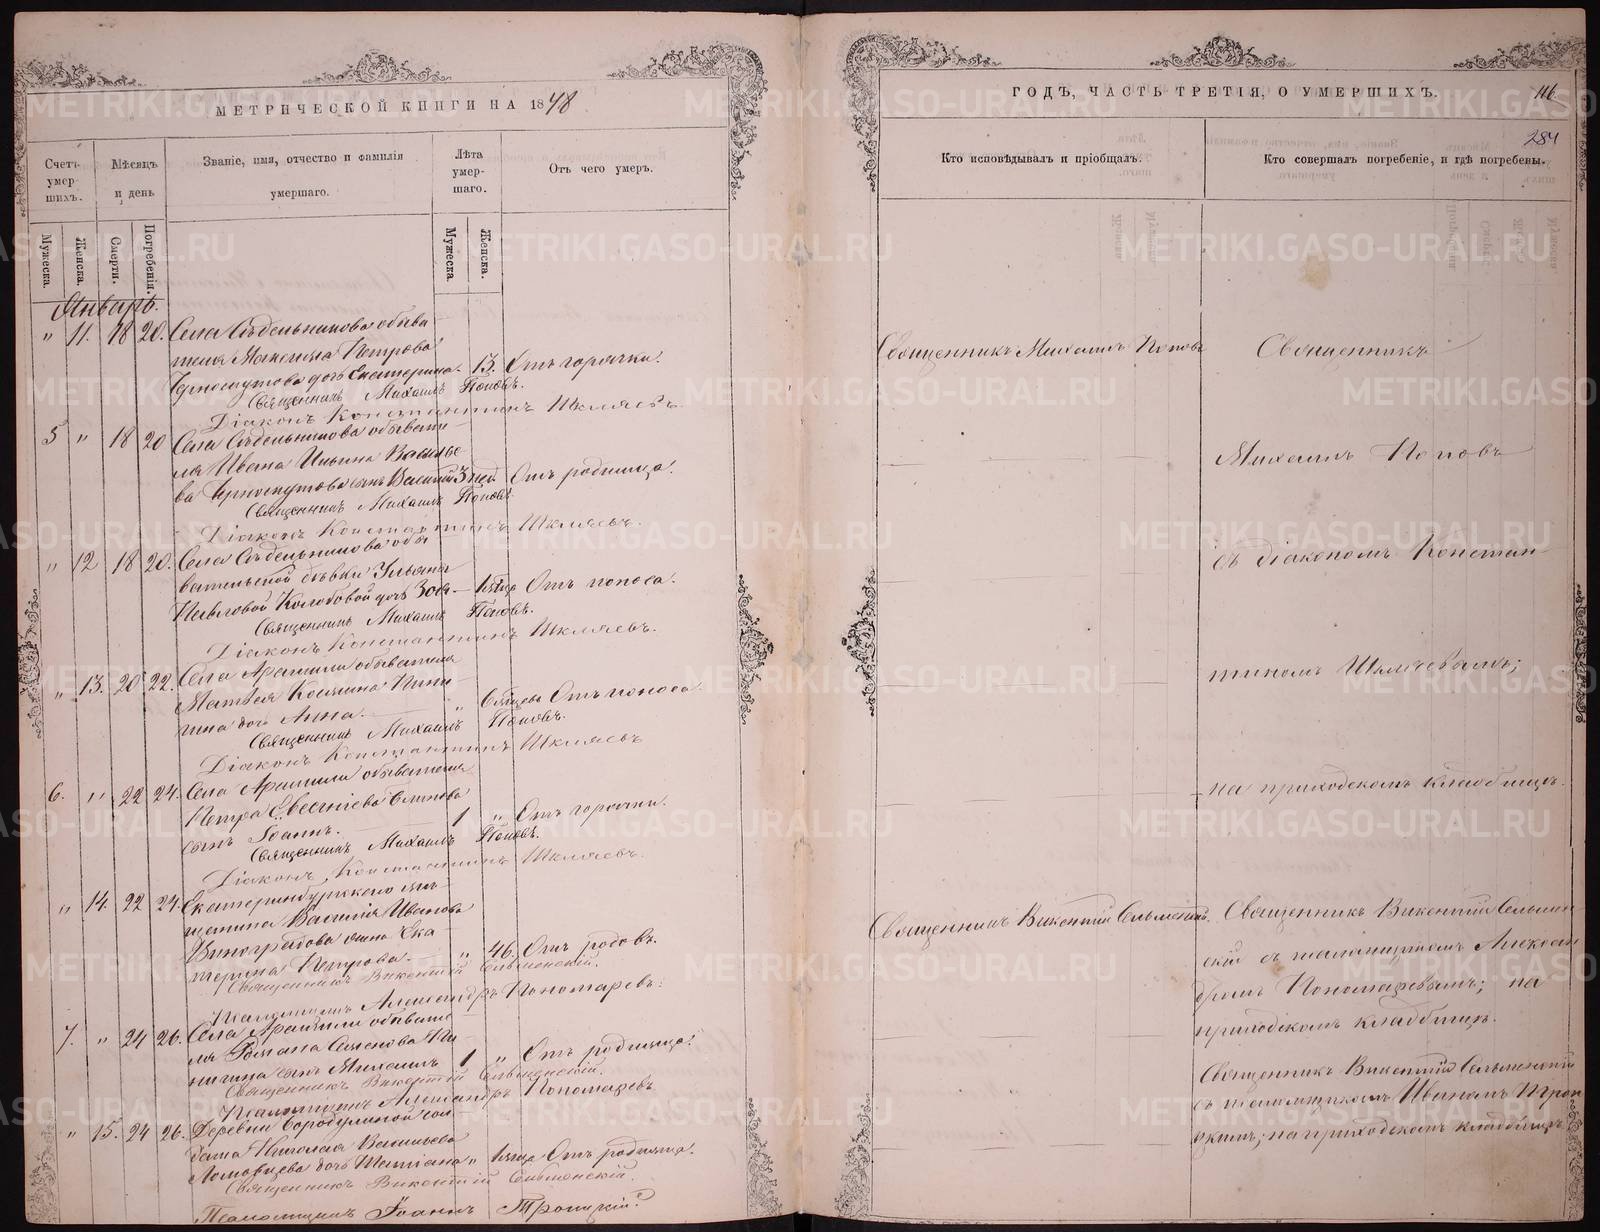 МЕТРИЧЕСКОЙ КНИГИ НА 1878
Счетъ умершихъ.
Мѣсяцъ и день
Званіе, имя, отчество и фамилія умершаго.
Лѣта умершаго.
Отъ чего умеръ.
Мужеска.
Женска.
Смерти.
Погребенія.
Мужеска.
Женска.
Январь.
" 11. 18 20. Села Сѣдельникова обыва-
теля Максима Петрова
Черноскутова дочь Екатерина. 13. Отъ горячки.
Священникъ Михаилъ Поповъ.
Діаконъ Константинъ Шкляевъ.
5 " 18 20 Села Сѣдельникова обывате-
ля Ивана Ильина Василье-
ва Черноскутова сынъ Василій 3 дней Отъ родимца.
Священникъ Михаилъ Поповъ.
Діаконъ Константинъ Шкляевъ.
" 12 18 20. Села Сѣдельникова обы-
вательской дѣвки Ульяны
Павловой Колобовой дочь Зоя Отъ поноса.
Священникъ Михаилъ Поповъ.
Діаконъ Константинъ Шкляевъ.
" 13. 20 22. Села Арамили обывателя
Матвея Косьмина Пини-
гина дочь Анна. " Отъ поноса.
Священникъ Михаилъ Поповъ.
Діаконъ Константинъ Шкляевъ
6. " 22 24. Села Арамили обывателя
Петра Евсевіева
сынъ Іоаннъ. 1 " Отъ горячки.
Священникъ Михаилъ Поповъ.
Діаконъ Константинъ Шкляевъ.
" 14. 22 24. Екатеринбургскаго мѣ-
щанина Василія Иванова
Виноградова жена Ека-
терина Петрова. " 46. Отъ родовъ.
Священникъ Викентій Сельменскій.
Псаломщикъ Александръ Пономаревъ.
7. " 24 26. Села Арамили обывате-
ля Романа Семенова Пи-
нигина сынъ Михаилъ 1 " Отъ родимца.
Священникъ Викентій Сельменскій.
Псаломщикъ Александръ Пономаревъ
" 15. 24 26. Деревни Бородулиной сол-
дата Николая Васильева
Ломовцева дочь " Отъ родимца.
Священникъ Викентій Сельменскій.
Псаломщикъ Іоаннъ Троицкій.
ГОДЪ, ЧАСТЬ ТРЕТІЯ, О УМЕРШИХЪ.
116.
284
Кто исповѣдывалъ и пріобщалъ.
Кто совершалъ погребеніе, и гдѣ погребены.
Священникъ Михаилъ Поповъ
Священникъ
Михаилъ Поповъ
съ діакономъ Констан-
тиномъ Шкляевымъ;
на приходскомъ кладбищѣ.
Священникъ Викентій Сельменскій.
Священникъ Викентій Сельмен-
скій съ псаломщикомъ Алексан-
дромъ Пономаревымъ; на
приходскомъ кладбищѣ.
Священникъ Викентій Сельменскій
съ псаломщикомъ Иваномъ Трои-
цкимъ; на приходскомъ кладбищѣ
METRIKI.GASO-URAL.RU